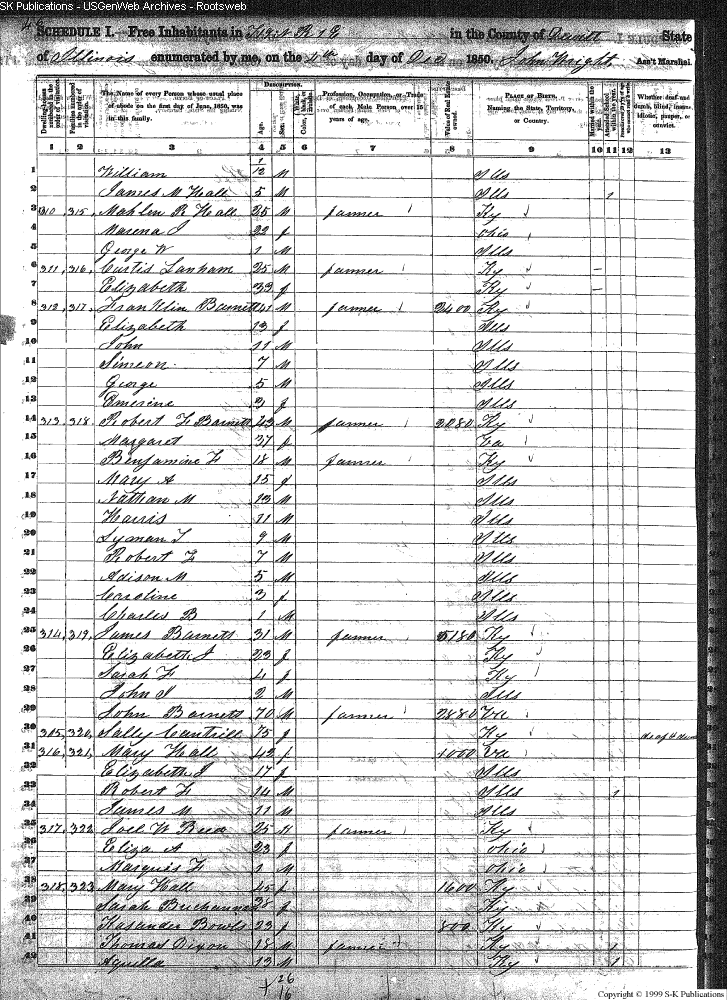 SK Publications - USGenWeb Archives - Rootsweb
SCHEDULE I. Free Inhabitants in in the County of Dewitt State
of Illinois enumerated by me, on the day of Dec 1850. John Wright Ass't Marshal.
Dwelling-houses numbered in the order of visitation.
Families numbered in the order of visitation.
The Name of every Person whose usual place of abode on the first day of June, 1850, was in this family.
DESCRIPTION.
Age.
Sex.
Color
Profession, Occupation, or Trade of each Male Person, over 15 years of age.
Value of Real Estate owned.
PLACE OF BIRTH. Naming the State, Territory, or Country.
Married within the year.
Attended School within the year.
Whether deaf and dumb, blind, insane, idiotic, pauper, or convict.
1 2 3 4 5 6 7 8 9 10 11 12 13
1 William 1/12 M Ills
2 James M Hall 5 M Ills 1
3 310 315 Mahlen R Hall 25 M farmer Ky
4 Marena J 22 f Ohio
5 George W 1 M Ills
6 311 316 Curtis Lanham 25 M farmer Ky
7 Elizabeth 33 f Ky
8 312 317 Franklin Barnett 41 M farmer 2400 Ky
9 Elizabeth 13 f Ills
10 John 11 M Ills
11 Simeon 7 M Ills
12 George 5 M Ills
13 Emerine 3 f Ills
14 313 318 Robert F Barnett 43 M farmer 2080 Ky
15 Margaret 37 f
16 Benjamine F 18 M farmer Ky
17 Mary A 15 f Ills
18 Nathan M 13 M Ills
19 Harris 11 M Ills
20 Lyman T 9 M Ills
21 Robert F 7 M Ills
22 Adison M 5 M Ills
23 Caroline 3 f Ills
24 Charles B 1 M Ills
25 314 319 James Barnett 31 M farmer 5180 Ky
26 Elizabeth J 23 f Ky
27 Sarah F 4 f Ky
28 John J 2 M Ills
29 John Barnett 70 M farmer 2880 Va
30 315 320 Sally Cantrill 75 f Ky
31 316 321 Mary Hall 42 f 1000 Va
32 Elizabeth J 17 f Ills
33 Robert F 14 M Ills 1
34 James M 11 M Ills
35 317 322 Joel W 25 M farmer Ky
36 Eliza A 23 f Ohio
37 Marquis F 1 M Ohio
38 318 323 Mary Hall 45 f 1600 Ky
39 Sarah Buchannan 38 f Ky
40 Kasander Bowls 23 f 800 Ky
41 Thomas Dixon 18 M farmer Ky 1
42 Aquilla 13 M Ky 1
26
16
Copyright © 1999 S-K Publications